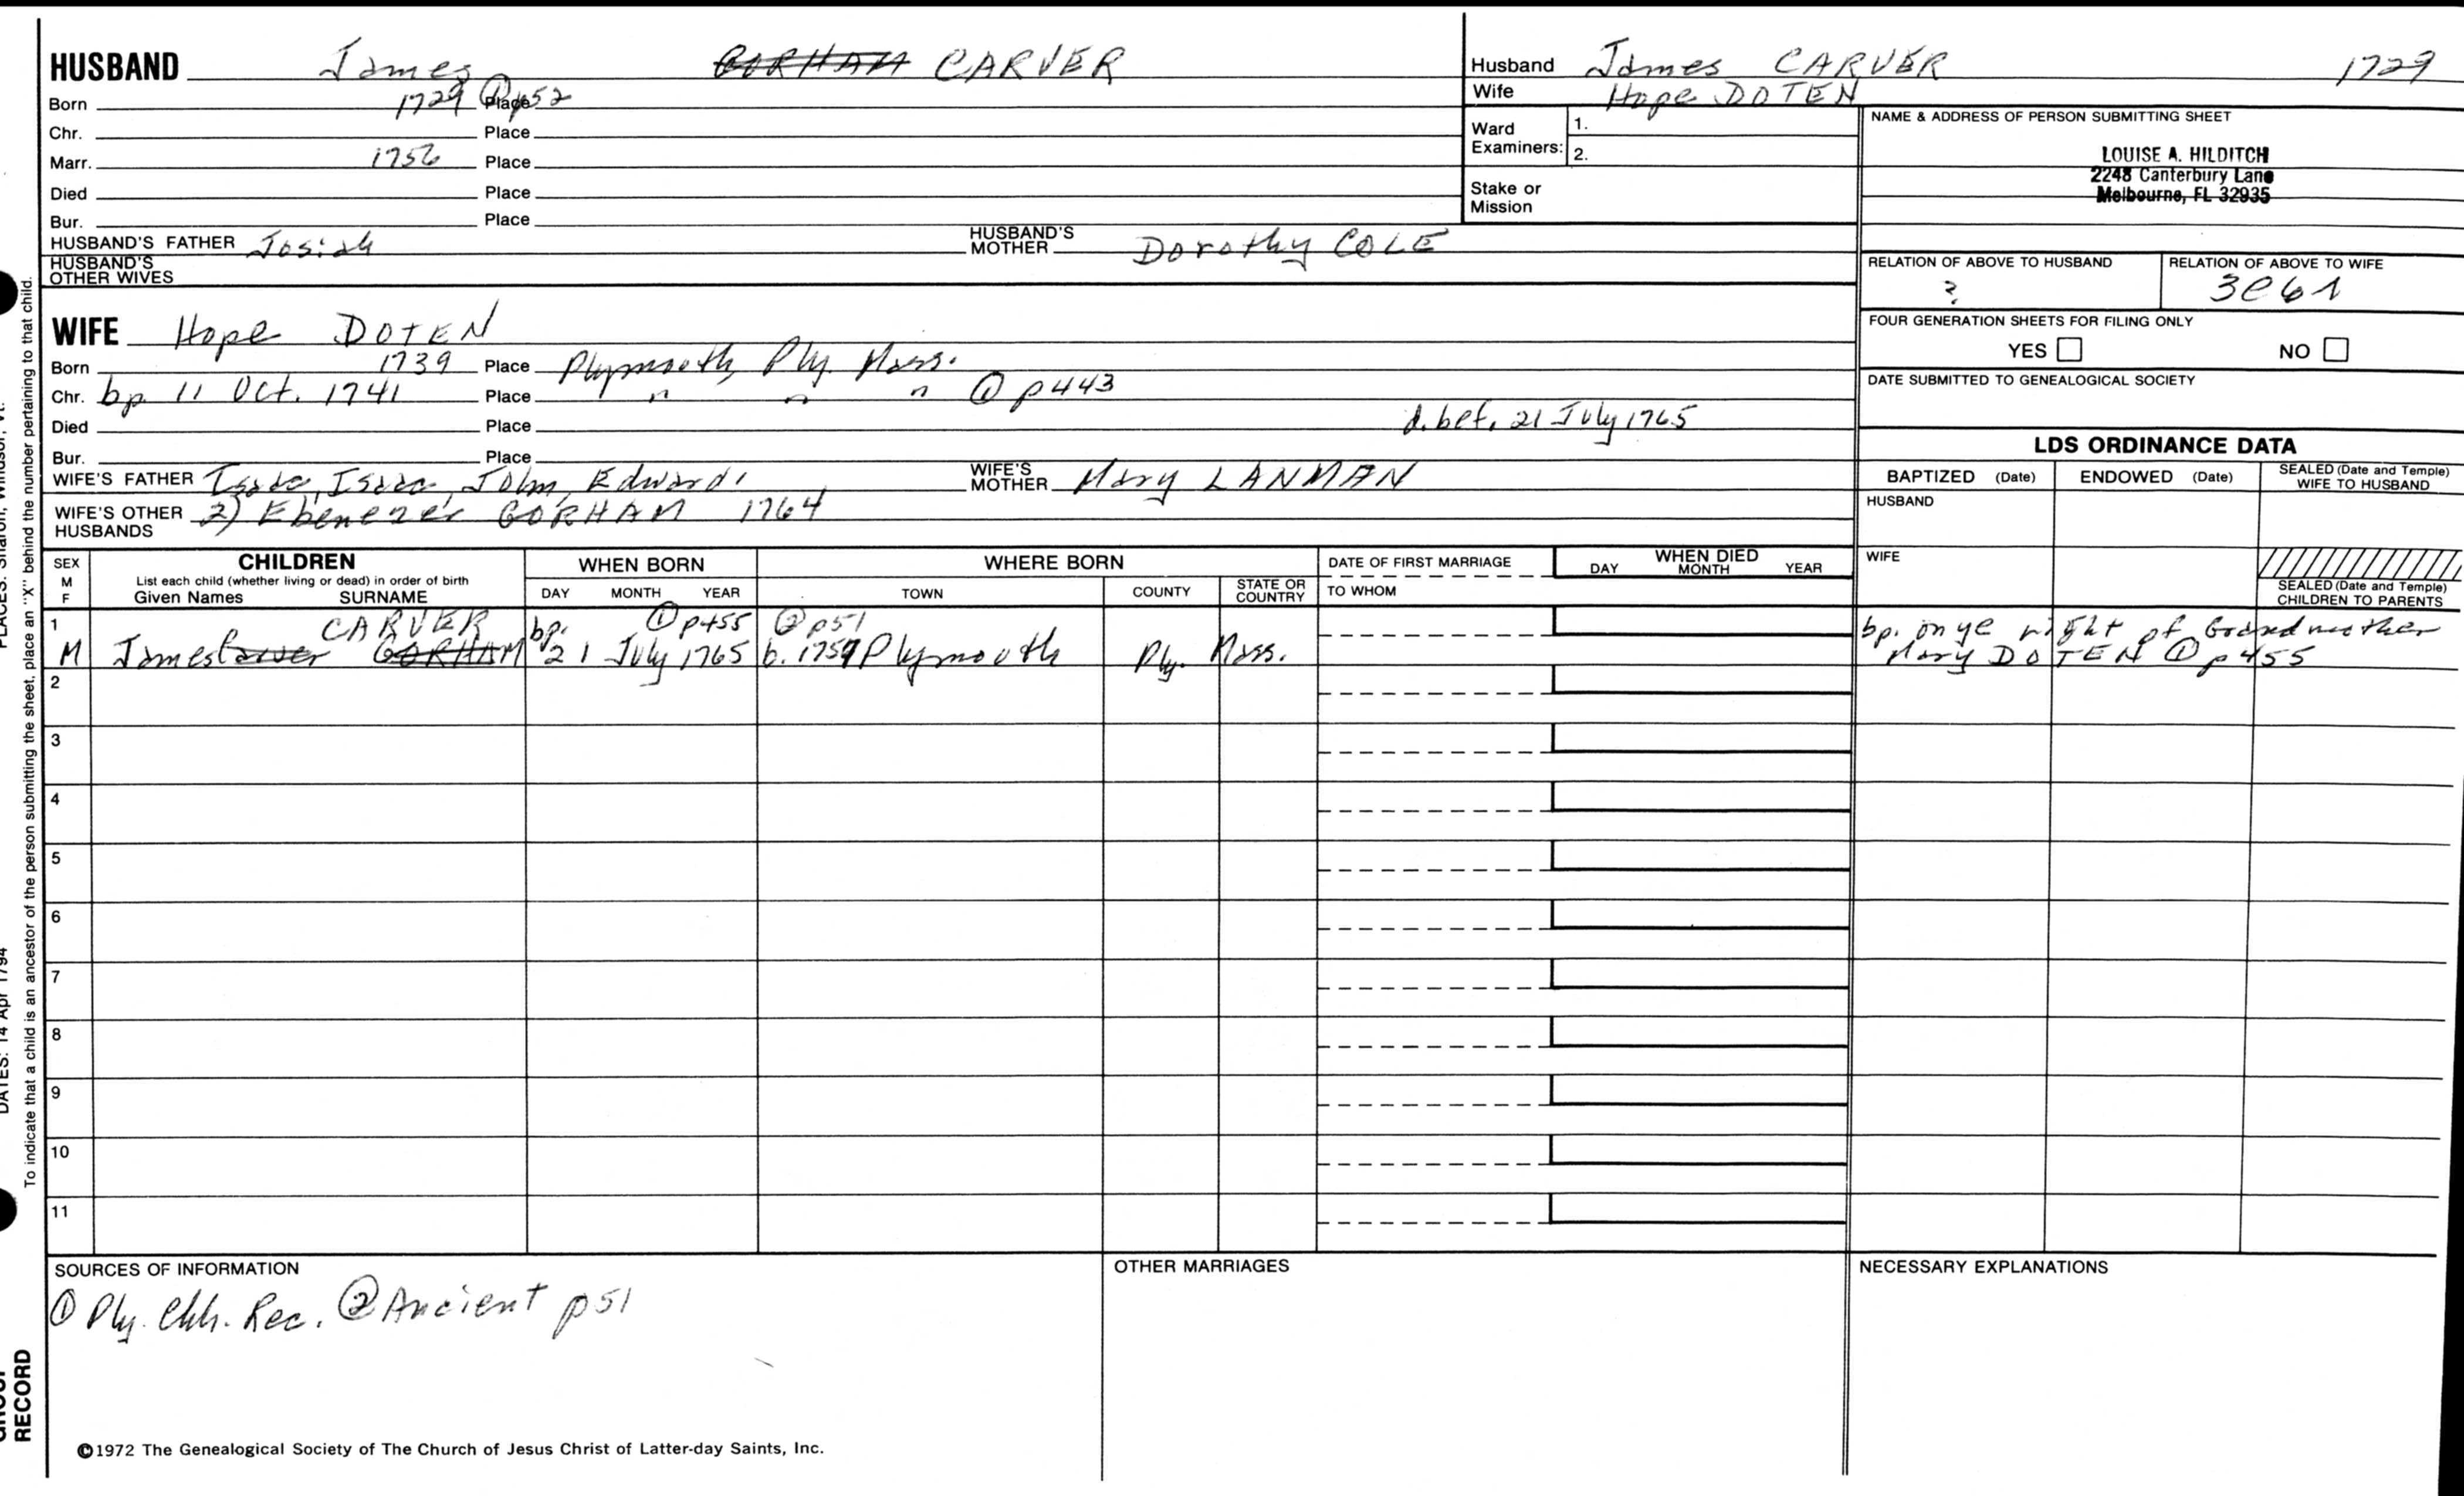 HUSBAND James GORHAM CARVER
Born 1729 Place p52
Chr. Place
Marr. 1756 Place
Died Place
Bur. Place
HUSBAND'S FATHER Josiah HUSBAND'S MOTHER Dorothy COLE
HUSBAND'S OTHER WIVES
Husband James CARVER 1729
Wife Hope DOTEN
Ward Examiners: 1.
2.
Stake or Mission
NAME & ADDRESS OF PERSON SUBMITTING SHEET
LOUISE A. HILDITCH
2248 Canterbury Lane
Melbourne, FL 32935
RELATION OF ABOVE TO HUSBAND RELATION OF ABOVE TO WIFE
? 3C6R
FOUR GENERATION SHEETS FOR FILING ONLY
YES NO
DATE SUBMITTED TO GENEALOGICAL SOCIETY
WIFE Hope DOTEN
Born 1739 Place Plymouth, Ply. Mass.
Chr. bp. 11 Oct. 1741 Place " " " ① p443
Died Place d. bef. 21 July 1765
Bur. Place
WIFE'S FATHER Isaac, Isaac, John, Edward, WIFE'S MOTHER Mary LANMAN
WIFE'S OTHER HUSBANDS 2) Ebenezer GORHAM 1764
LDS ORDINANCE DATA
BAPTIZED (Date) ENDOWED (Date) SEALED (Date and Temple) WIFE TO HUSBAND
HUSBAND
WIFE
SEALED (Date and Temple) CHILDREN TO PARENTS
SEX M F CHILDREN WHEN BORN WHERE BORN DATE OF FIRST MARRIAGE WHEN DIED
List each child (whether living or dead) in order of birth
Given Names SURNAME DAY MONTH YEAR TOWN COUNTY STATE OR COUNTRY TO WHOM DAY MONTH YEAR
1 CARVER bp. ① p455 ② p51 bp. on ye right of Grandmother
M James Carver GORHAM 21 July 1765 b. 1757 Plymouth Ply. Mass. Mary DOTEN ① p455
2
3
4
5
6
7
8
9
10
11
SOURCES OF INFORMATION OTHER MARRIAGES NECESSARY EXPLANATIONS
① Ply. Chh. Rec. ② Ancient p51
©1972 The Genealogical Society of The Church of Jesus Christ of Latter-day Saints, Inc.
To indicate that a child is an ancestor of the person submitting the sheet, place an "X" behind the number pertaining to that child.
DATES: 14 Apr 1794 PLACES: Sharon, Windsor, Vt.
GROUP RECORD